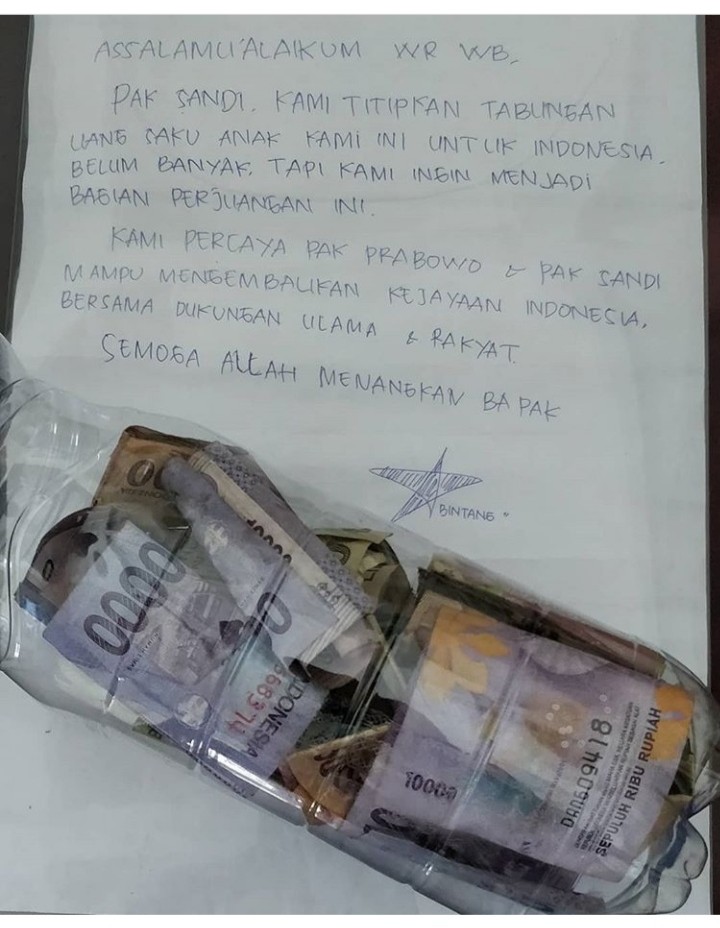 ASSALAMU'ALAIKUM WR WB,
PAK SANDI. KAMI TITIPKAN TABUNGAN
UANG SAKU ANAK KAMI INI UNTUK INDONESIA.
BELUM BANYAK, TAPI KAMI INGIN MENJADI
BAGIAN PERJUANGAN INI.
KAMI PERCAYA PAK PRABOWO & PAK SANDI
MAMPU MENGEMBALIKAN KEJAYAAN INDONESIA,
BERSAMA DUKUNGAN ULAMA & RAKYAT.
SEMOGA ALLAH MENANGKAN BAPAK
BINTANG"
0000
668374
DONESIA
10000
DAN509418
SEPULUH RIBU RUPIAH